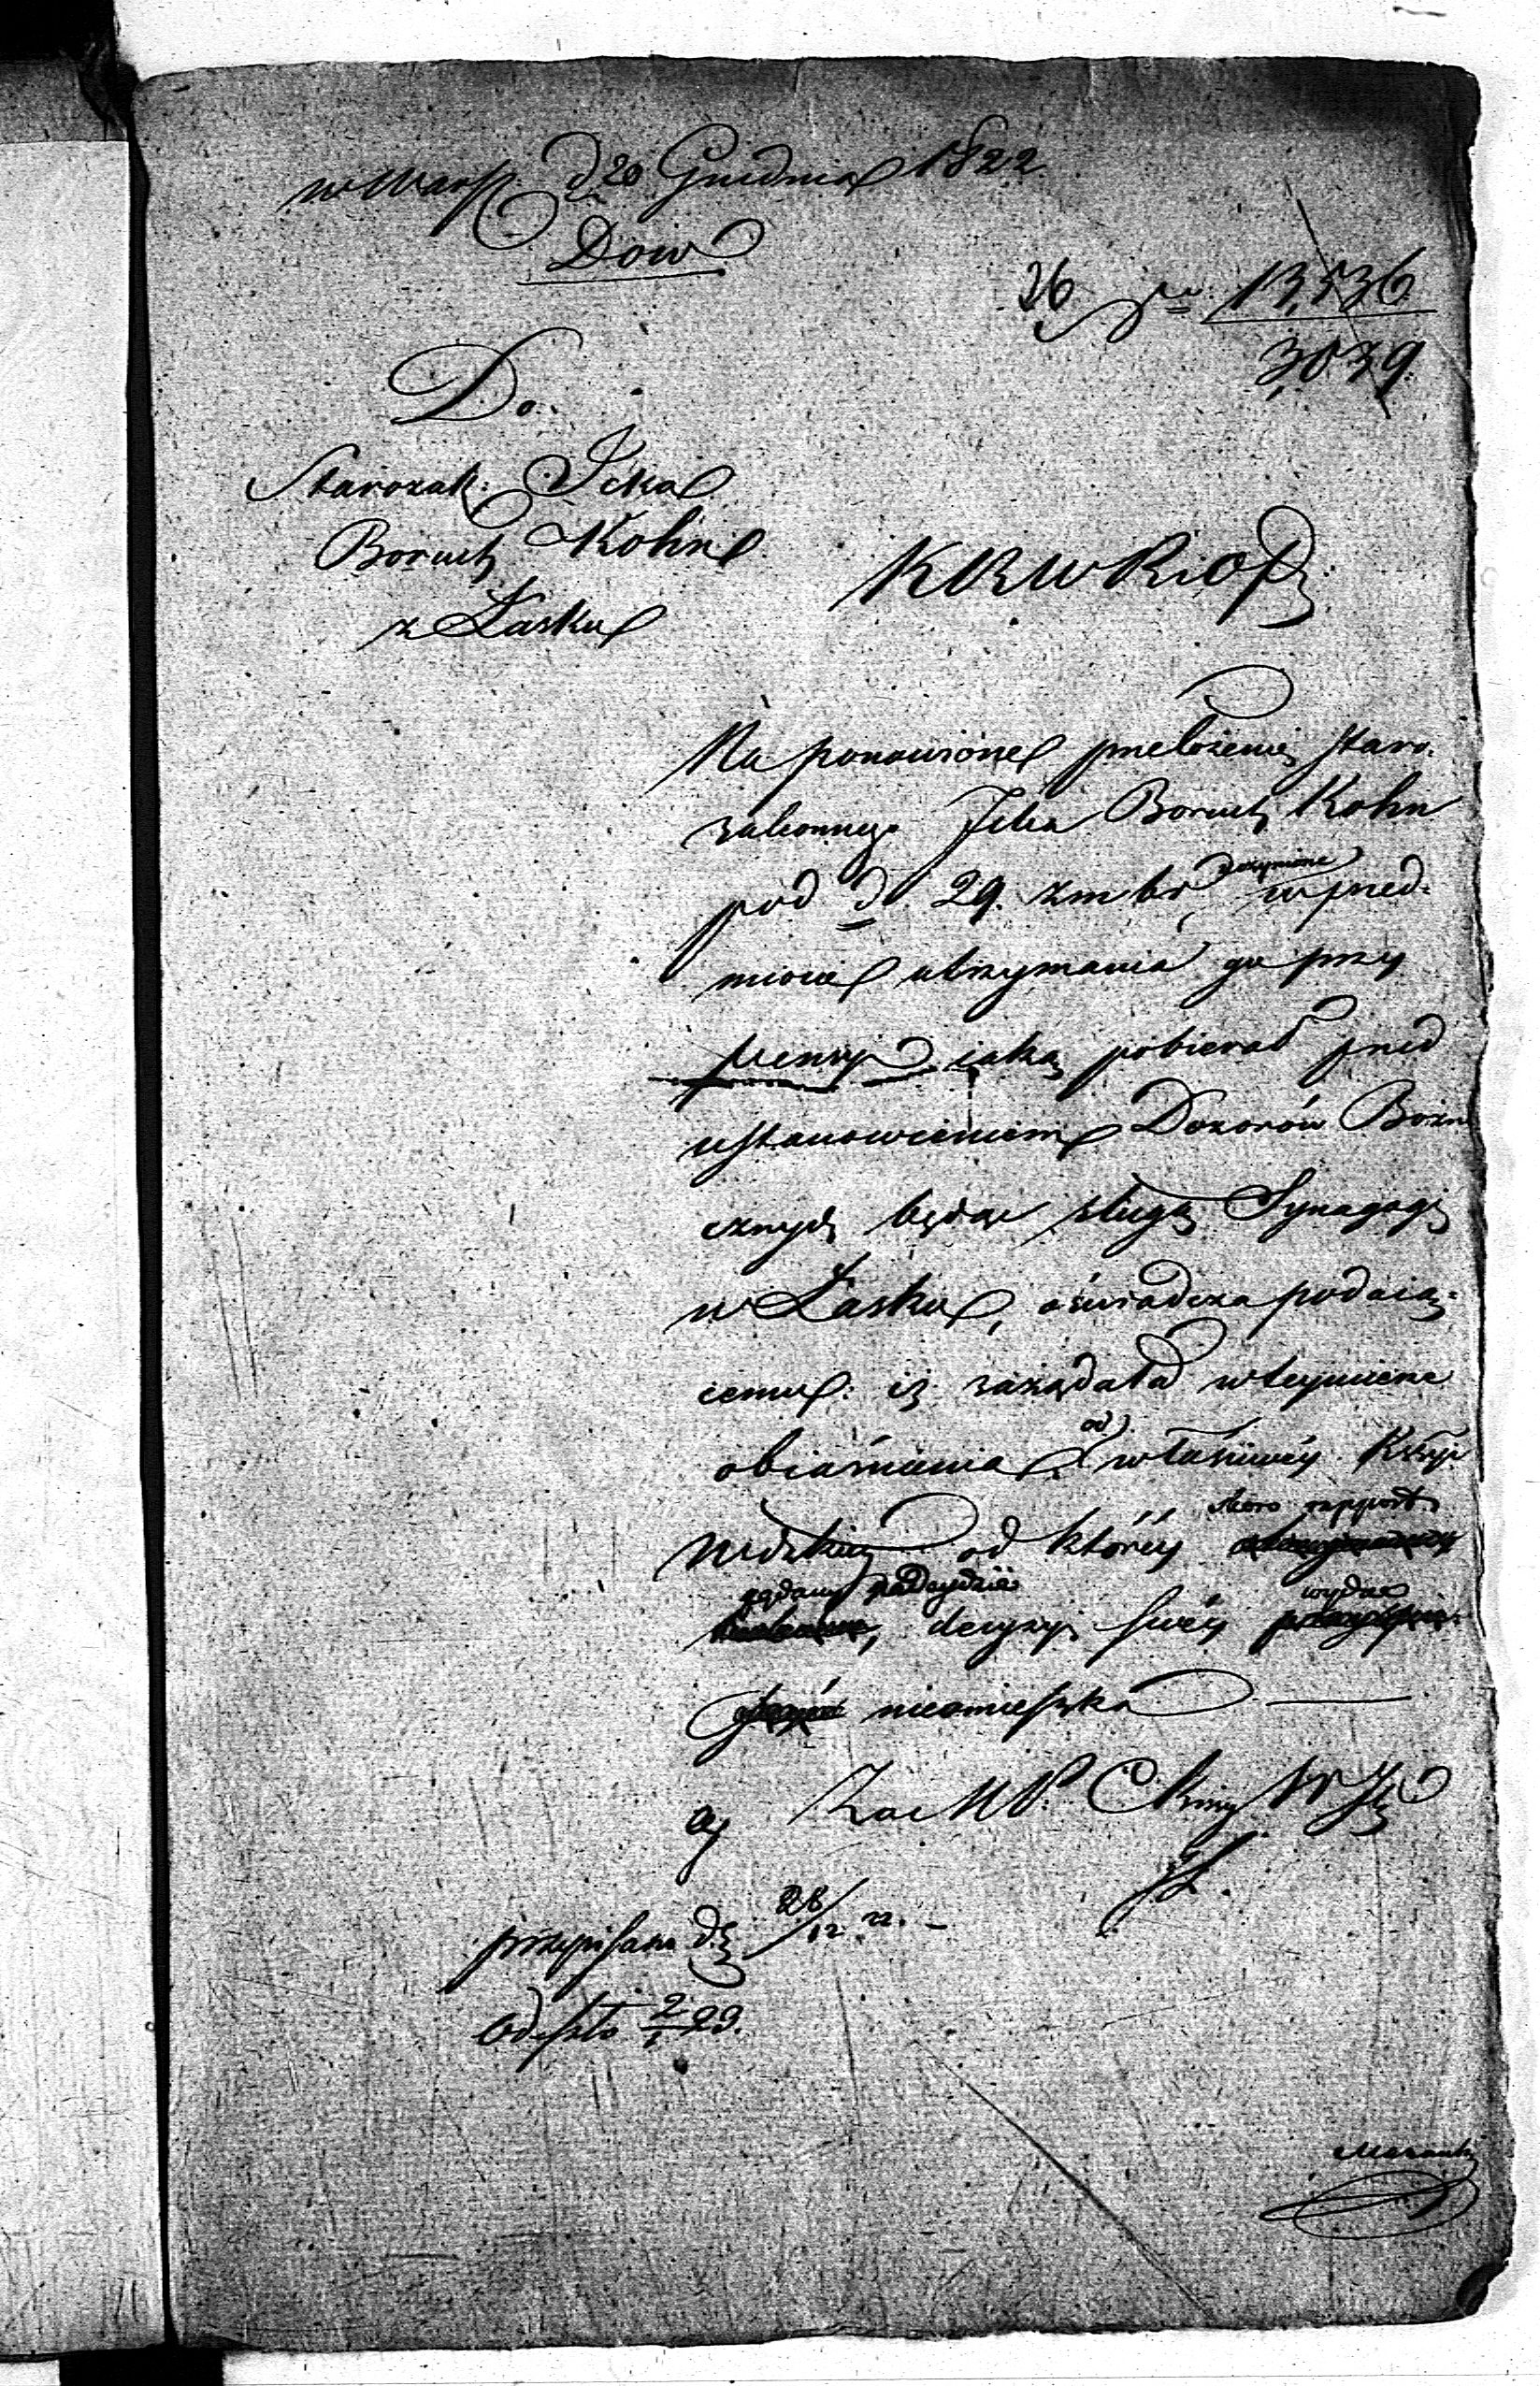 w Warsz. d. 20 Grudnia 1822.
Dow
26 13,536
3,039.
Do
Starozak: Icka
Boruch Kohn
z Łasku
KRWRiOP
Na ponowione przełożenie staro-
zakonnego Icka Boruch Kohn
pod d. 29. z m b r uczynione w przed-
miocie utrzymania go przy
pensyi iaką pobierał przed
ustanowieniem Dozorów Bożni
cznych będąc sługą Synagogi
w Łasku, oświadcza podaią-
cemu: iż zażądała w tey mierze
obiaśnienia od właściwéy Kssyi
Wdzkiey od któréy skoro rapport
żądany nadeydzie, decyzyi swéy wydać
nieomieszka
Za M P.
przepisano d. 28/12 22.
Odeszło 2/1 23.